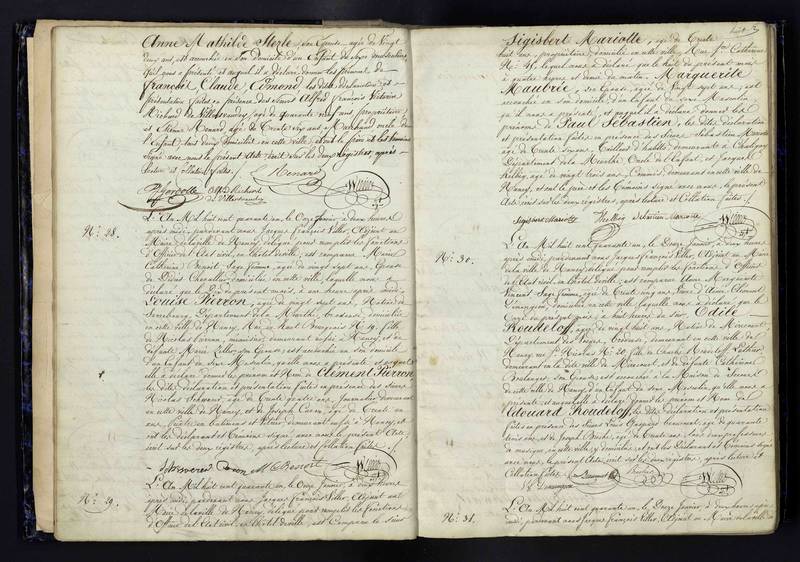 Anne Mathilde Sterle, son Epouse, agée de Vingt
neuf ans, est accouchée en son domicile d'un Enfant de Sexe masculin,
qu'il nous a présenté, et auquel il a déclaré donner les prénoms de
François Claude Edmond, les dites déclaration et
présentation faites en présence des Sieurs Alfred François Victorin
Richard de Villersvaudrey, agé de quarante neuf ans, propriétaire
et Etienne Menard, agé de Trente ans, Marchand, oncle de
l'Enfant, tous deux domiciliés en cette ville, et ont le père et les témoins
signé avec nous le présent Acte écrit sur les deux registres, après
lecture et Collation faites.
Menard
N.° 28.
L'An Mil huit cent quarante un, le Onze Janvier, à deux heures
après midi, pardevant nous Jacques François Viller, Adjoint au
Maire de la ville de Nancy, délégué pour remplir les fonctions
d'Officier de l'Etat civil, en l'hôtel de ville, est comparue Marie
Catherine Benoit, Sage femme, agée de vingt sept ans, Epouse
de Didier Chevallier, domiciliée en cette ville, laquelle nous a
déclaré que le Dix du présent mois, à une heure après midi,
Louise Pierron, agée de vingt sept ans, Native de
Sarrebourg, Département de la Meurthe, brodeuse, domiciliée
en cette ville de Nancy, Rue du Haut Bourgeois N.° 19, fille
de Nicolas Pierron, menuisier, demeurant aussi à Nancy, et de
défunte Marie, son Epouse, est accouchée en son domicile
d'un Enfant de Sexe Masculin, qu'elle nous a présenté et auquel
elle a déclaré donner les prénom et Nom de Clement Pierron,
les dites déclaration et présentation faites en présence des Sieurs
Nicolas Schweverer, agé de Trente quatre ans, Journalier demeurant
en cette ville de Nancy, et de Joseph Caren, agé de Trente un
ans, demeurant aussi à Nancy, et
ont les déclarant et témoins signé avec nous le présent Acte,
écrit sur les deux registres, après lecture et Collation faites.
M C Benoit
N.° 29.
L'An Mil huit cent quarante un, le Onze Janvier, à deux heures
après midi, pardevant nous Jacques François Viller, Adjoint au
Maire de la ville de Nancy, délégué pour remplir les fonctions
d'Officier de l'Etat civil, en l'hôtel de ville, est Comparu le Sieur
Sigisbert Mariotte, agé de Trente
huit ans, propriétaire, domicilié en cette ville, Rue S.te Catherine
N.°, lequel nous a déclaré que le huit du présent mois
à quatre heures et demie du matin, Marguerite
Maubrée, son Epouse, agée de Vingt sept ans, est
accouchée en son domicile d'un Enfant de Sexe Masculin
qu'il nous a présenté, et auquel il a déclaré donner les
prénoms de Paul Sébastien, les dites déclaration
et présentation faites en présence des Sieurs Sébastien Mariotte
agé de Trente ans, Tailleur d'habits demeurant à Champigny
Département de la Meurthe, Oncle de l'Enfant, et Jacques
Helbig, agé de vingt trois ans, Commis demeurant en cette ville de
Nancy, et ont le père et les témoins signé avec nous, le présent
Acte écrit sur les deux registres, après lecture et Collation faites.
Sigisbert Mariotte Helbig Sebastien Mariotte
N.° 30.
L'An Mil huit cent quarante un, le Douze Janvier, à deux heures
après midi, pardevant nous Jacques François Viller, Adjoint au Maire
de la ville de Nancy, délégué pour remplir les fonctions d'Officier
de l'Etat civil, en l'hôtel de ville, est comparue Anne Marguerite
Vincent, Sage femme, agée de Trente cinq ans, Veuve d'Anne Clément
domiciliée en cette ville, laquelle nous a déclaré que le
Onze du présent mois à huit heures du soir, Odile
Roudeloff, agée de vingt huit ans, Native de
Département des Vosges, brodeuse, demeurant en cette ville de
Nancy, rue S.t Nicolas N.° 20, fille de Charles Roudeloff, Luthier,
demeurant en la dite ville de, et de défunte Catherine
Boulanger, son Epouse, est accouchée à la Maison de Secours
de cette ville de Nancy, d'un Enfant de Sexe Masculin, qu'elle nous a
présenté, et auquel elle a déclaré donner les prénom et Nom de
Edouard Roudeloff, les dites déclaration et présentation
faites en présence des Sieurs Louis Gaspard, agé de quarante
trois ans, et de Joseph, agé de Trente ans, Professeur
de musique, en cette ville, y domiciliés, et ont les Déclarant et témoins signé
avec nous, le présent Acte, écrit sur les deux registres, après lecture et
Collation faites.
N.° 31.
L'An Mil huit cent quarante un, le Douze Janvier, à deux heures après
midi, pardevant nous Jacques François Viller, Adjoint au Maire de la ville de